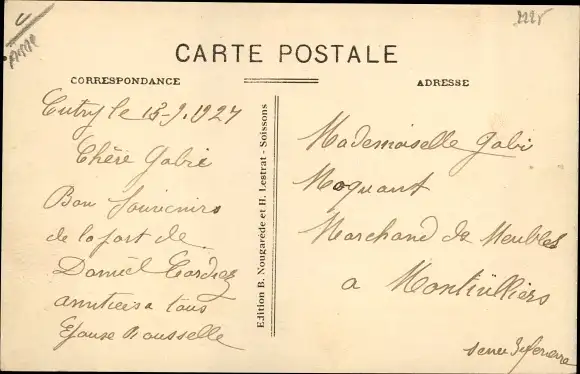 2225
CARTE POSTALE
CORRESPONDANCE
ADRESSE
Cutry le 13-9.1927
Chère Gabie
Bon Souvenirs
de la part de
Daniel
amitiers a tous
Edition B. Nougarède et H. Lestrat - Soissons
Mademoiselle Gabi
Moquant
Marchand de Meubles
a Montivilliers